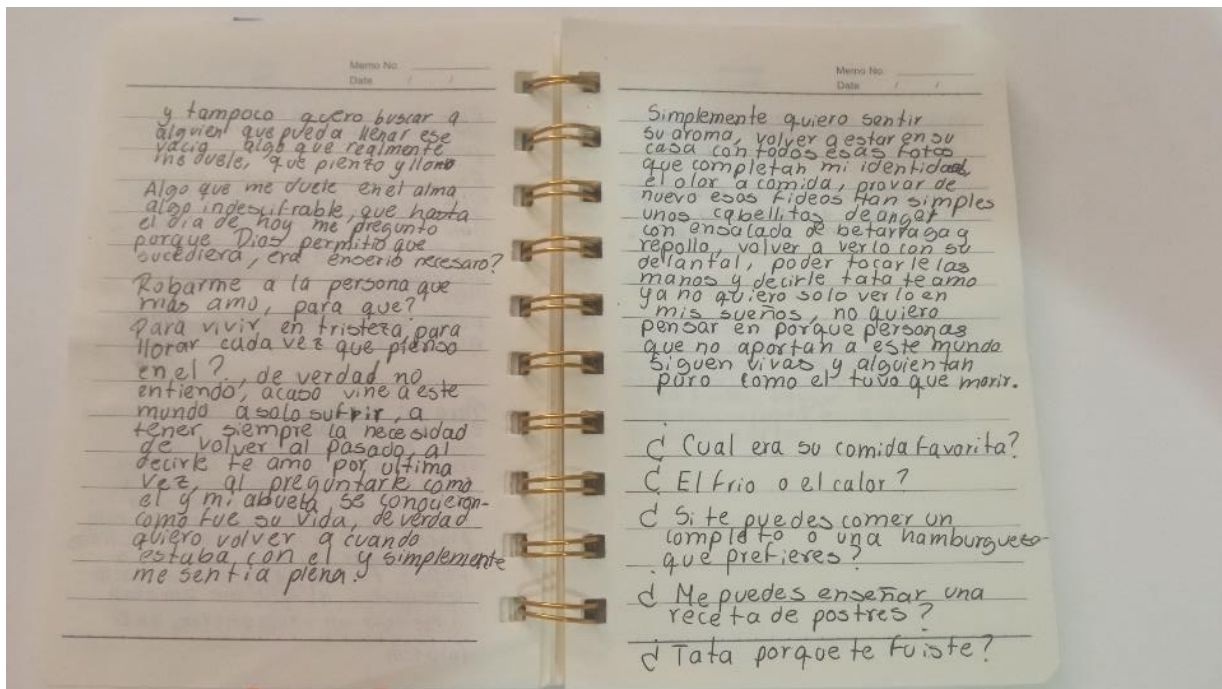 Memo No.
Date / /
y tampoco quero buscar a
alguien que pueda llenar ese
vacio algo que realmente
me duele, que pienzo y lloro
Algo que me duele en el alma
algo indescifrable, que hasta
el dia de hoy me pregunto
porque Dios permitio que
sucediera, era enserio necesaro?
Robarme a la persona que
más amo, para que?
Para vivir en tristeza, para
llorar cada vez que pienso
en el?, de verdad no
entiendo, acaso vine a este
mundo a solo sufrir, a
tener siempre la necesidad
de volver al pasado, al
decirle te amo por ultima
vez, al preguntarle como
el y mi abuela se conocieron-
como fue su vida, de verdad
quiero volver a cuando
estaba con el y simplemente
me sentia plena.
Memo No.
Date / /
Simplemente quiero sentir
su aroma, volver a estar en su
casa con todos esas fotos
que completan mi identidad
el olor a comida, provar de
nuevo esos fideos tan simples
unos cabellitos de angel
con ensalada de betarraga y
repollo, volver a verlo con su
delantal, poder tocarle las
manos y decirle tata te amo
ya no quiero solo verlo en
mis sueños, no quiero
pensar en porque personas
que no aportan a este mundo
siguen vivas y alguien tan
puro como el tuvo que morir.
¿Cual era su comida favorita?
¿El frio o el calor?
¿Si te puedes comer un
completo o una hamburguesa
que prefieres?
¿Me puedes enseñar una
receta de postres?
¿Tata porque te fuiste?